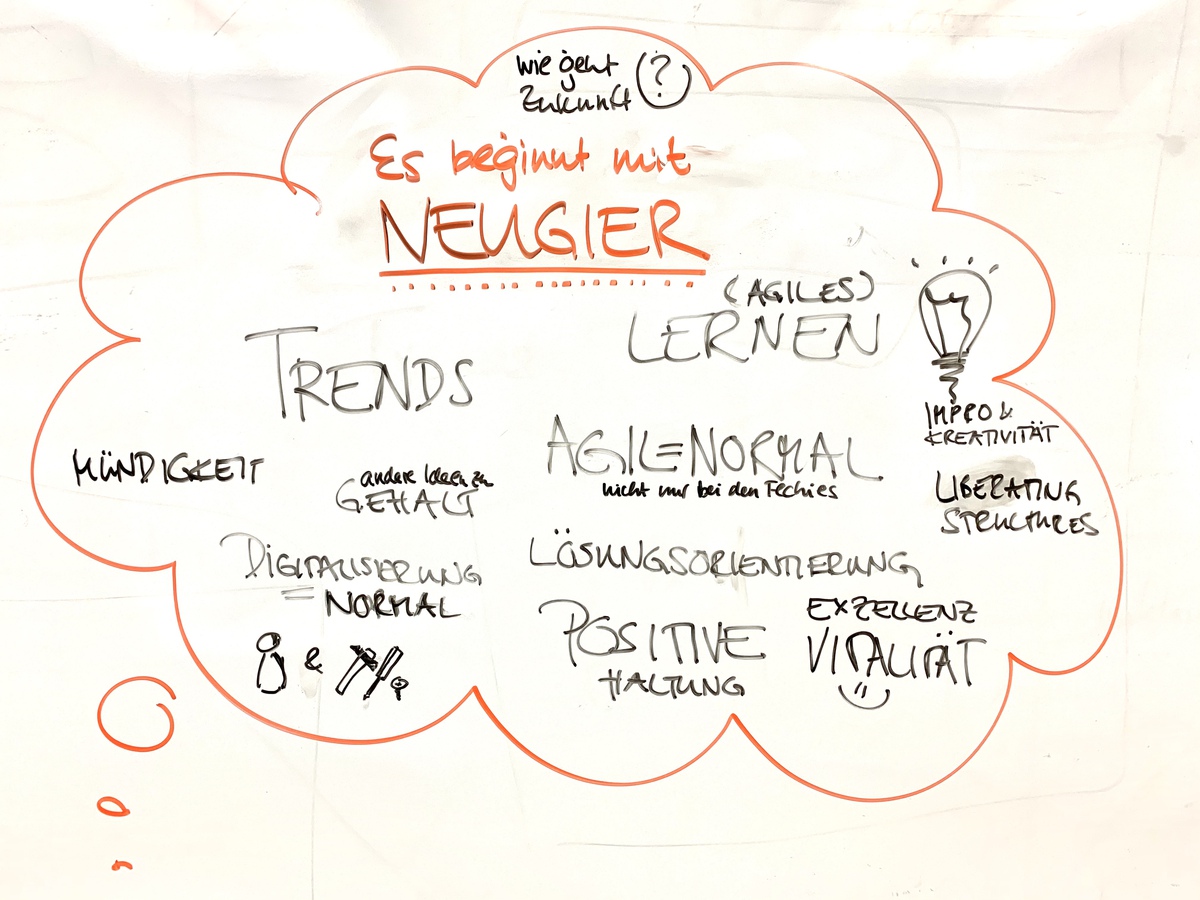 wie geht
Zukunft ?
Es beginnt mit
NEUGIER
(AGILES)
LERNEN
TRENDS
IMPRO &
KREATIVITÄT
AGIL=NORMAL
nicht nur bei den Techies
MÜNDIGKEIT
andere Ideen zu
GEHALT
LIBERATING
STRUCTURES
DIGITALISIERUNG
= NORMAL
&
LÖSUNGSORIENTIERUNG
POSITIVE
HALTUNG
EXZELLENZ
VITALITÄT